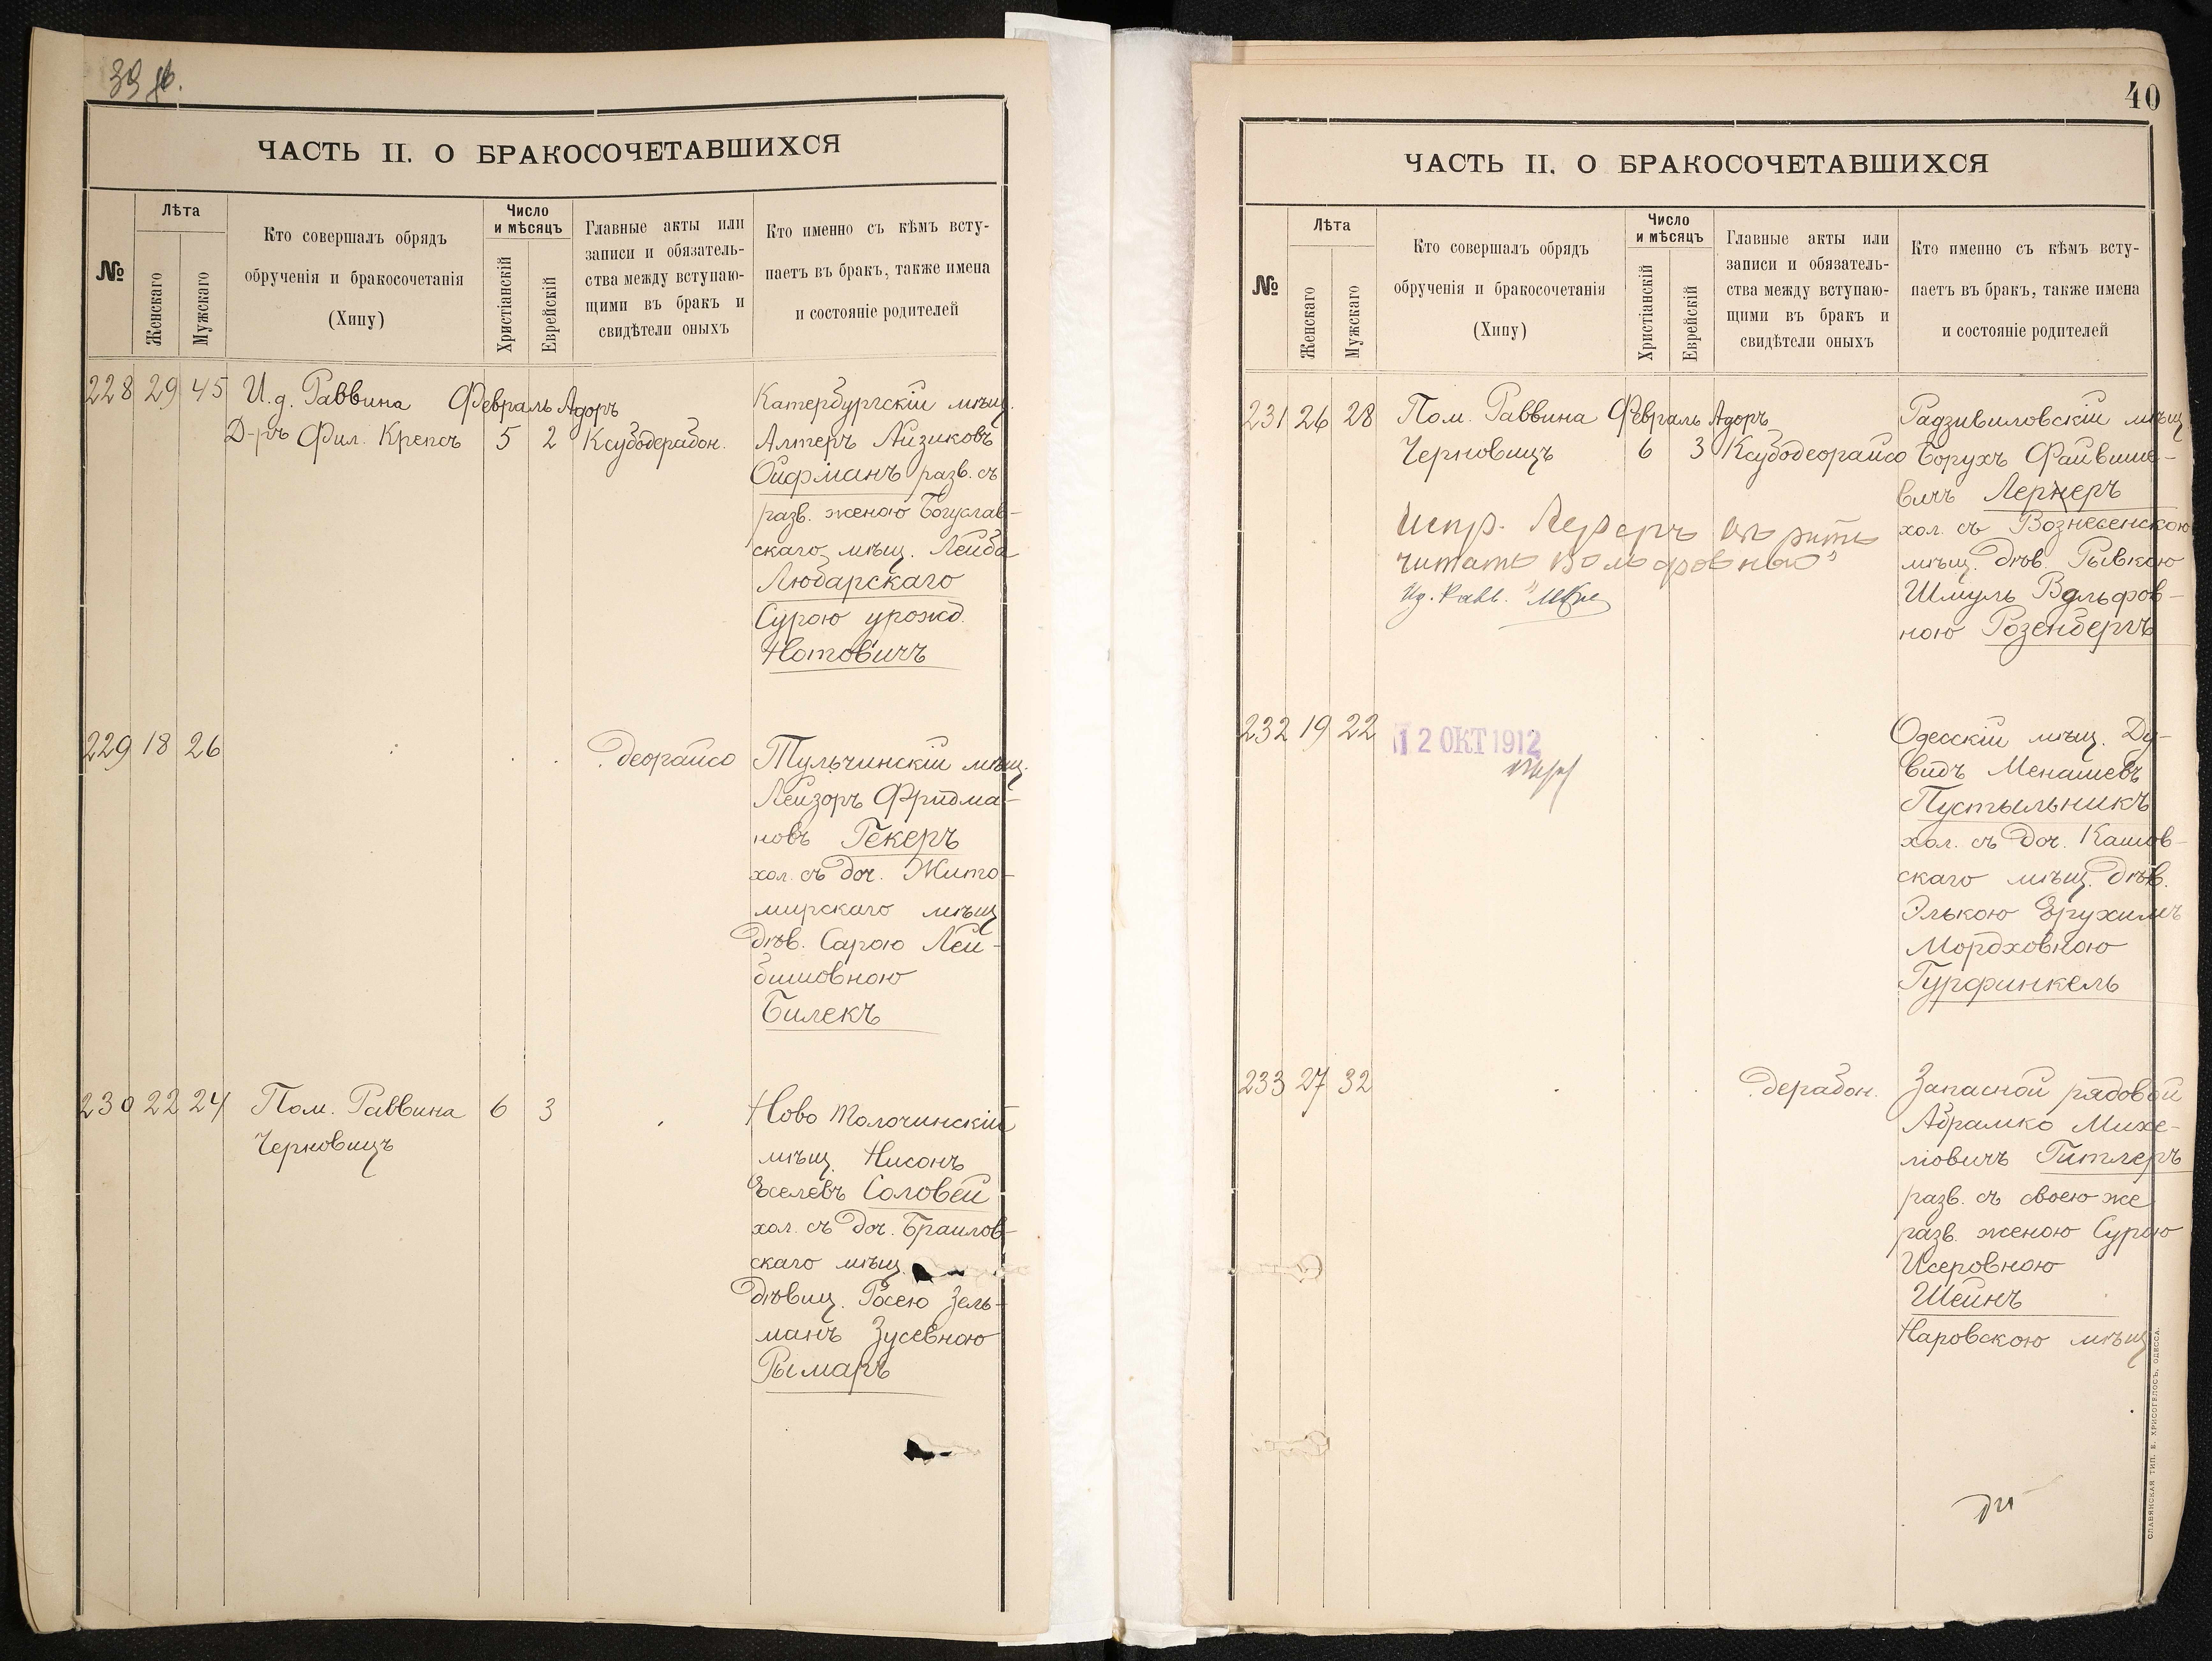 39 об.
ЧАСТЬ II. О БРАКОСОЧЕТАВШИХСЯ
№
Лѣта
Женскаго
Мужскаго
Кто совершалъ обрядъ
обрученія и бракосочетанія
(Хипу)
Число
и мѣсяцъ
Христіанскій
Еврейскій
Главные акты или
записи и обязатель-
ства между вступаю-
щими въ бракъ и
свидѣтели оныхъ
Кто именно съ кѣмъ всту-
паетъ въ бракъ, также имена
и состояніе родителей
228 29 45 И.д. Раввина Февраль Адоръ
Д-ръ Фил. Крепсъ 5 2 Ксубодерабон.
Катербургскій мѣщ.
Алтеръ Айзиковъ
Ойфманъ разв. съ
разв. женою Богуслав-
скаго мѣщ. Лейба
Любарскаго
Сурою урожд.
Нотовичъ
229 18 26 деорайсо
Тульчинскій мѣщ.
Лейзоръ Фридма-
новъ Гекеръ
хол. съ доч. Жито-
мирскаго мѣщ
дѣв. Сарою Лей-
бишовною
Билекъ
230 22 24 Пом. Раввина 6 3
Черновицъ
Ново Толочинскій
мѣщ. Нисонъ
Хселевъ Соловей
хол. съ доч. Браилов-
скаго мѣщ.
дѣвиц. Росею Зель-
манъ Зусевною
Рымаръ
40
ЧАСТЬ II. О БРАКОСОЧЕТАВШИХСЯ
№
Лѣта
Женскаго
Мужскаго
Кто совершалъ обрядъ
обрученія и бракосочетанія
(Хипу)
Число
и мѣсяцъ
Христіанскій
Еврейскій
Главные акты или
записи и обязатель-
ства между вступаю-
щими въ бракъ и
свидѣтели оныхъ
Кто именно съ кѣмъ всту-
паетъ въ бракъ, также имена
и состояніе родителей
231 26 28 Пом. Раввина Февраль Адоръ
Черновицъ 6 3 Ксубодеорайсо
Испр.
читать Вольфовною"
Ид. Равв.
Радзивиловскій мѣщ
Борухъ Файвише-
вичъ Лернеръ
хол. съ Вознесенскою
мѣщ. дѣв. Рывкою
Шмуль Вольфов-
ною Розенбергъ
232 19 22
12 ОКТ 1912
Одесскій мѣщ. Ду-
видъ Менашевъ
Пустыльникъ
хол. съ доч. Кашов-
скаго мѣщ. дѣв.
Элькою Ерухимъ
Мордховною
Гурфинкель
233 27 32 дерабон.
Запасной рядовой
Абрамко Михе-
ліовичъ Гитлеръ
разв. съ своею же
разв. женою Сурою
Исеровною
Шейнъ
Наровскою мѣщ
СЛАВЯНСКАЯ ТИП. Е. ХРИСОГЕЛОСЪ, ОДЕССА.